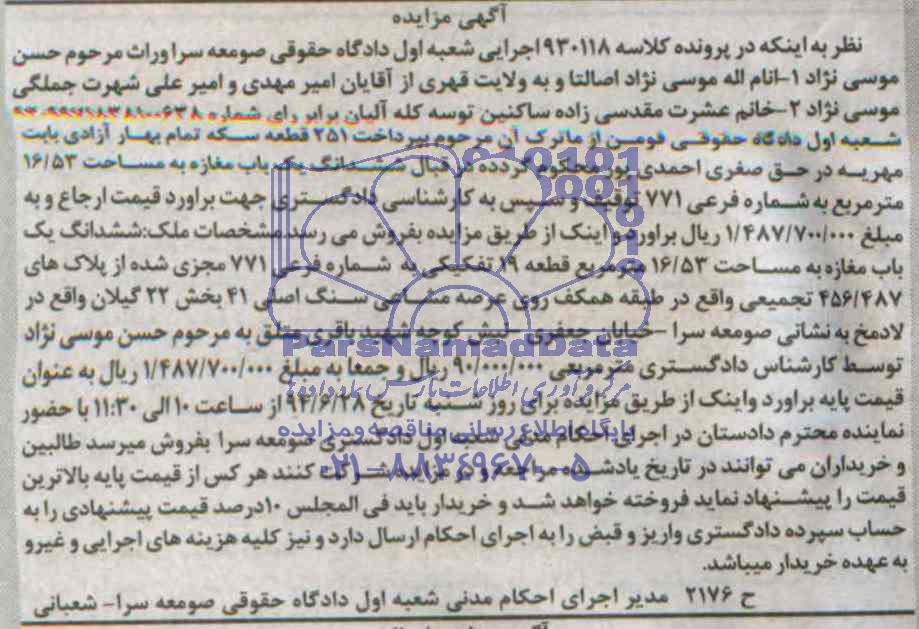 آگهی مزایده
نظر به اینکه در پرونده کلاسه ۹۳۰۱۱۸ اجرایی شعبه اول دادگاه حقوقی صومعه سرا وراث مرحوم حسن
موسی نژاد ۱-انام اله موسی نژاد اصالتا و به ولایت قهری از آقایان امیر مهدی و امیر علی شهرت جملگی
موسی نژاد ۲-خانم عشرت مقدسی زاده ساکنین توسه کله آلیان برابر رای شماره
شعبه اول دادگاه حقوقی فومن از ماترک آن مرحوم بپرداخت ۲۵۱ قطعه سکه تمام بهار آزادی بابت
مهریه در حق صغری احمدی پور محکوم گردده در قبال ششدانگ یک باب مغازه به مساحت ۱۶/۵۳
مترمربع به شماره فرعی ۷۷۱ توقیف و سپس به کارشناسی دادگستری جهت براورد قیمت ارجاع و به
مبلغ ۱/۴۸۷/۷۰۰/۰۰۰ ریال براورد و اینک از طریق مزایده بفروش می رسد.مشخصات ملک:ششدانگ یک
باب مغازه به مساحت ۱۶/۵۳ مترمربع قطعه ۱۹ تفکیکی به شماره فرعی ۷۷۱ مجزی شده از پلاک های
۴۵۶/۴۸۷ تجمیعی واقع در طبقه همکف روی عرصه مشاعی سنگ اصلی ۴۱ بخش ۲۲ گیلان واقع در
لادمخ به نشانی صومعه سرا -خیابان جعفری -نبش کوچه شهید باقری متلق به مرحوم حسن موسی نژاد
ParsNamadData
توسط کارشناس دادگستری مترمربعی ۹۰/۰۰۰/۰۰۰ ریال و جمعا به مبلغ ۱/۴۸۷/۷۰۰/۰۰۰ ریال به عنوان
مرکز فرآوری اطلاعات پارس نماد داده ها
قیمت پایه براورد واینک از طریق مزایده برای روز شنبه تاریخ ۹۴/۶/۲۸ از ساعت ۱۰ الی ۱۱:۳۰ با حضور
پایگاه اطلاع رسانی مناقصه و مزایده
نماینده محترم دادستان در اجرای احکام مدنی شعبه اول دادگستری صومعه سرا بفروش میرسد طالبین
۰۲۱-۸۸۳۴۹۶۷۰-۵
و خریداران می توانند در تاریخ یادشده مراجعه و در مزایده شرکت کنند هر کس از قیمت پایه بالاترین
قیمت را پیشنهاد نماید فروخته خواهد شد و خریدار باید فی المجلس ۱۰درصد قیمت پیشنهادی را به
حساب سپرده دادگستری واریز و قبض را به اجرای احکام ارسال دارد و نیز کلیه هزینه های اجرایی و غیرو
به عهده خریدار میباشد.
ح ۲۱۷۶ مدیر اجرای احکام مدنی شعبه اول دادگاه حقوقی صومعه سرا- شعبانی